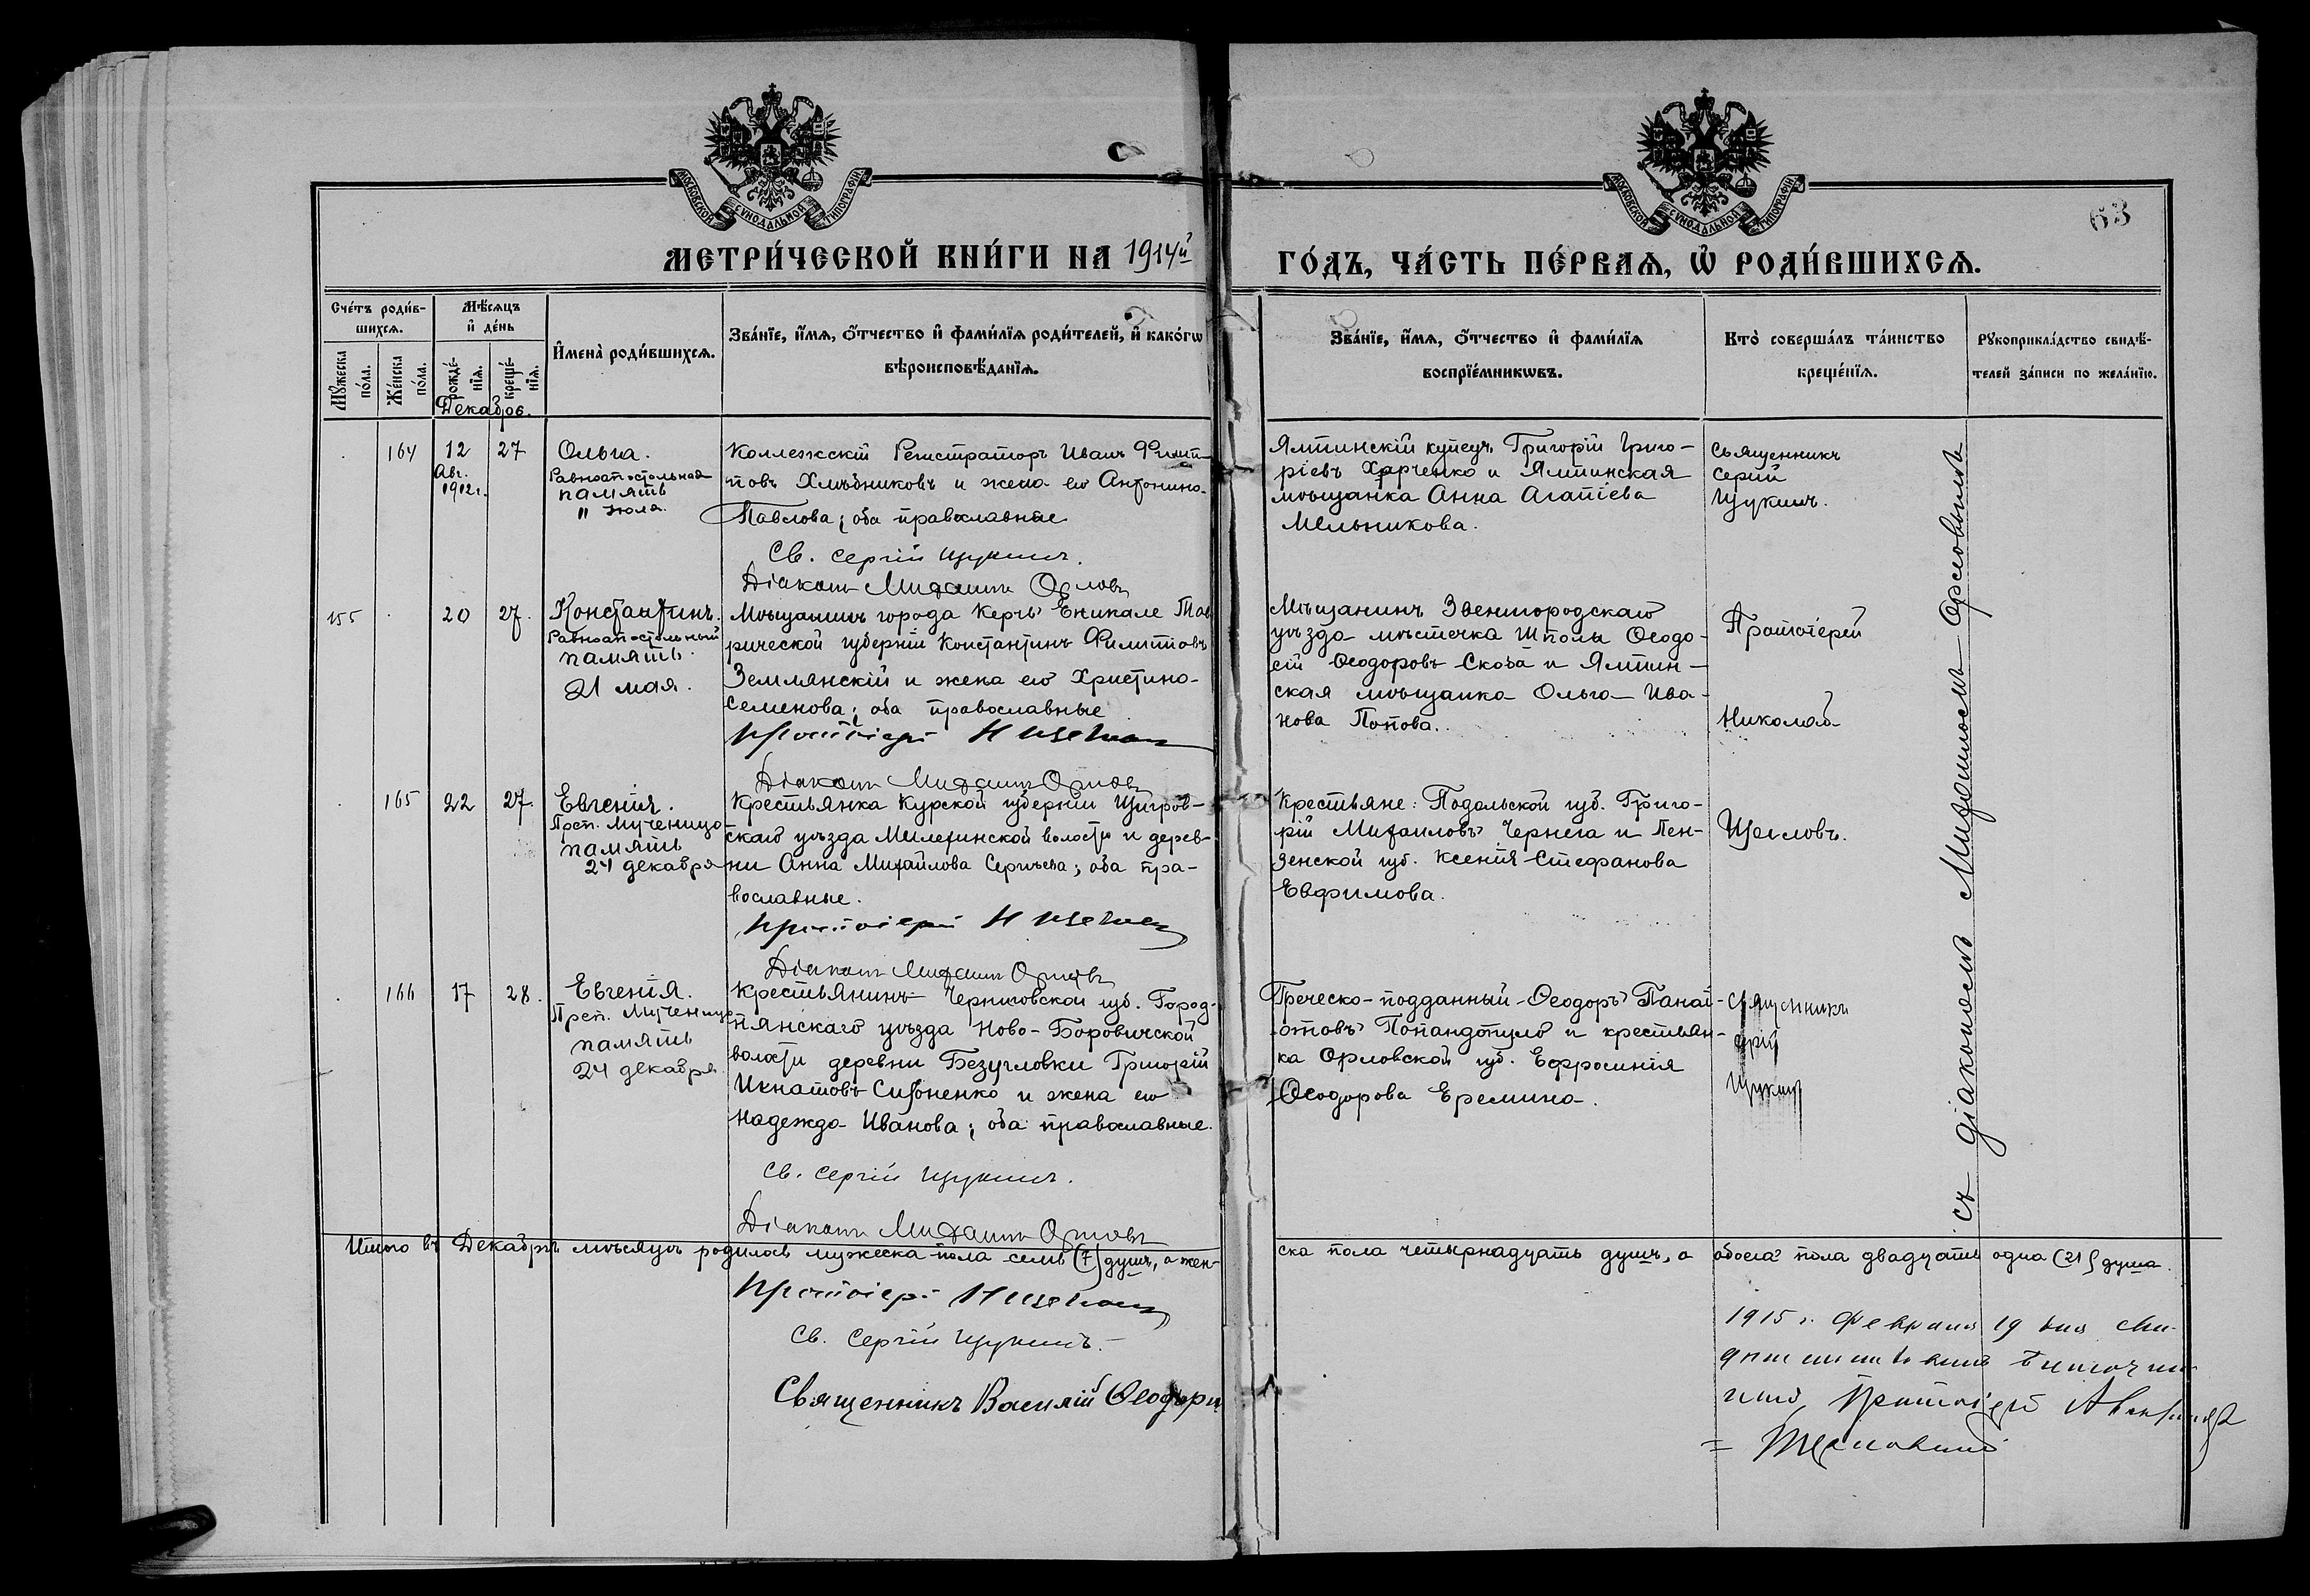 МОСКОВСКОЙ СѴНОДАЛЬНОЙ ТИПОГРАФІИ
МОСКОВСКОЙ СѴНОДАЛЬНОЙ ТИПОГРАФІИ
63
МЕТРИ́ЧЕСКОЙ КНИ́ГИ НА 1914й
ГО́ДЪ, ЧА́СТЬ ПЕ́РВАѦ, Ѡ҆ РОДИ́ВШИХСѦ.
Сче́тъ роди́в-
шихсѧ.
Мѣ́сѧцъ
и҆ де́нь
Мꙋ́жеска
по́ла.
Же́нска
по́ла.
рожде́-
нїѧ.
креще́-
нїѧ.
И҆мена̀ роди́вшихсѧ.
Зва́нїе, и҆́мѧ, ѻ҆́тчество и҆ фами́лїѧ роди́телей, и҆ како́гѡ
вѣроисповѣ́данїѧ.
Зва́нїе, и҆́мѧ, ѻ҆́тчество и҆ фами́лїѧ
воспрїе́мникѡвъ.
Кто̀ соверша́лъ та́инство
креще́нїѧ.
Рꙋкоприкла́дство свидѣ́-
телей за́писи по жела́нїю.
Декабрь.
164
12
Авг.
1912 г.
27
Ольга.
Равноапостольная
память
11 Іюля.
Коллежскій Регистраторъ Иванъ Филип-
повъ Хлѣбниковъ и жена его Антонина
Павлова; оба православные
Св. Сергій Щукинъ.
Діаконъ Михаилъ Орловъ
Ялтинскій купецъ Григорій Григо-
ріевъ Харченко и Ялтинская
мѣщанка Анна Агапіева
Мельникова.
Священникъ
Сергій
Щукинъ.
155
20
27.
Константинъ.
Равноапостольный
память
21 мая.
Мѣщанинъ города Керчь Еникале Тав
рической губерніи Константинъ Филипповъ
Землянскій и жена его Христина
Семенова; оба православные
Протоіерей Н Щегловъ
Діаконъ Михаилъ Орловъ
Мѣщанинъ Звенигородскаго
уѣзда мѣстечка Шполы Ѳеодо-
сій Ѳеодоровъ Скоба и Ялтин-
ская мѣщанка Ольга Ива-
нова Попова.
Протоіерей
Николай
165
22
27.
Евгенія.
Преп. Мученица
память
24 декабря
Крестьянка Курской губерніи Щигров-
скаго уѣзда волости и дерев-
ни Анна Михайлова Сергѣева; оба пра-
вославные.
Протоіерей Н Щегловъ
Діаконъ Михаилъ Орловъ
Крестьяне: Подольской губ. Григо-
рій Михаиловъ Чернега и Пен-
зенской губ. Ксенія Стефанова
Евфимова.
Щегловъ.
166
17
28.
Евгенія.
Преп. Мученица
память
24 декабря
Крестьянинъ Черниговской губ. Город-
нянскаго уѣзда Ново-Боровичской
волости деревни Безугловки Григорій
Игнатовъ Сизоненко и жена его
Надежда Иванова; оба православные.
Св. Сергій Щукинъ.
Діаконъ Михаилъ Орловъ
Греческо-подданный Ѳеодоръ Панаі-
отовъ Попандопуло и крестьян-
ка Орловской губ. Ефросинія
Ѳеодорова Еремина.
Священникъ
Сергій
Щукинъ
съ діакономъ Михаиломъ Орловымъ
Итого въ Декабрѣ мѣсяцѣ родилось мужеска пола семь (7) душъ, а жен-
ска пола четырнадцать душъ, а обоего пола двадцать одна (21) душа.
Протоіерей Н Щегловъ
Св. Сергій Щукинъ.
Священникъ Василій
1915 г. Февраля 19 дня
Протоіерей